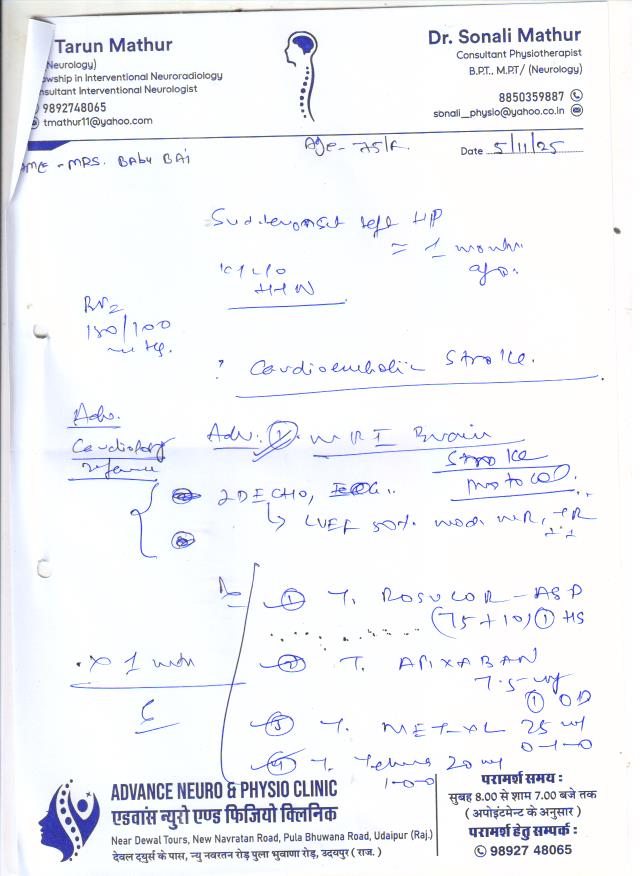 Tarun Mathur
Neurology)
wship in Interventional Neuroradiology
nsultant Interventional Neurologist
9892748065
tmathur11@yahoo.com
Dr. Sonali Mathur
Consultant Physiotherapist
B.P.T., M.P.T/ (Neurology)
8850359887
sonali_physio@yahoo.co.in
ME - MRS. BABU BAI
Age - 75/F
Date 5/11/25
Sudden onset left HP
≈ 1 month
ago.
K/C/O
HTN
BP=
150/100
mmHg.
? Cardioembolic Stroke.
Adv.
Cardiology
reference
Adv: 1. MRI Brain
Stroke
Protocol.
2DECHO, ECG..
↳ LVEF 50% mod. MR, TR
① T. ROSUCOR-ASP
(75+10) ① HS
② T. APIXABAN
7.5 mg
① OD
x 1 month
③ T. MET-XL 25 mg
0-1-0
④ T. 20 mg
1-0-0
ADVANCE NEURO & PHYSIO CLINIC
एडवांस न्युरो एण्ड फिजियो क्लिनिक
Near Dewal Tours, New Navratan Road, Pula Bhuwana Road, Udaipur (Raj.)
देवल टयुर्स के पास, न्यु नवरतन रोड़ पुला भुवाणा रोड़, उदयपुर ( राज. )
परामर्श समय :
सुबह 8.00 से शाम 7.00 बजे तक
( अपोइंटमेन्ट के अनुसार )
परामर्श हेतु सम्पर्क :
98927 48065